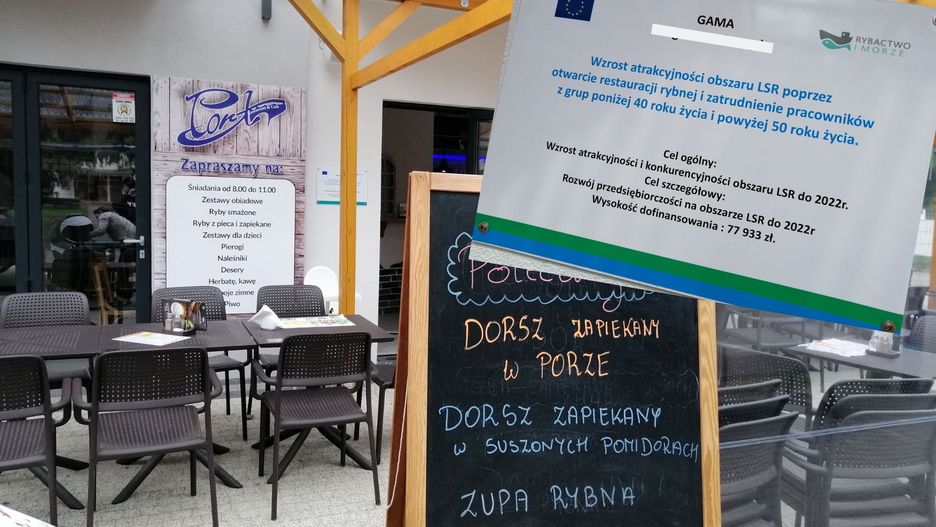 Port
Zapraszamy na:
Śniadania od 8.00 do 11.00
Zestawy obiadowe
Ryby smażone
Ryby z pieca i zapiekane
Zestawy dla dzieci
Pierogi
Naleśniki
Desery
Herbatę, kawę
zimne
Piwo
GAMA
RYBACTWO
I MORZE
Wzrost atrakcyjności obszaru LSR poprzez
otwarcie restauracji rybnej i zatrudnienie pracowników
z grup poniżej 40 roku życia i powyżej 50 roku życia.
Cel ogólny:
Wzrost atrakcyjności i konkurencyjności obszaru LSR do 2022r.
Cel szczegółowy:
Rozwój przedsiębiorczości na obszarze LSR do 2022r
Wysokość dofinansowania : 77 933 zł.
DORSZ ZAPIEKANY
w PORZE
DORSZ ZAPIEKANY
w SUSZONYCH POMIDORACH
ZUPA RYBNA